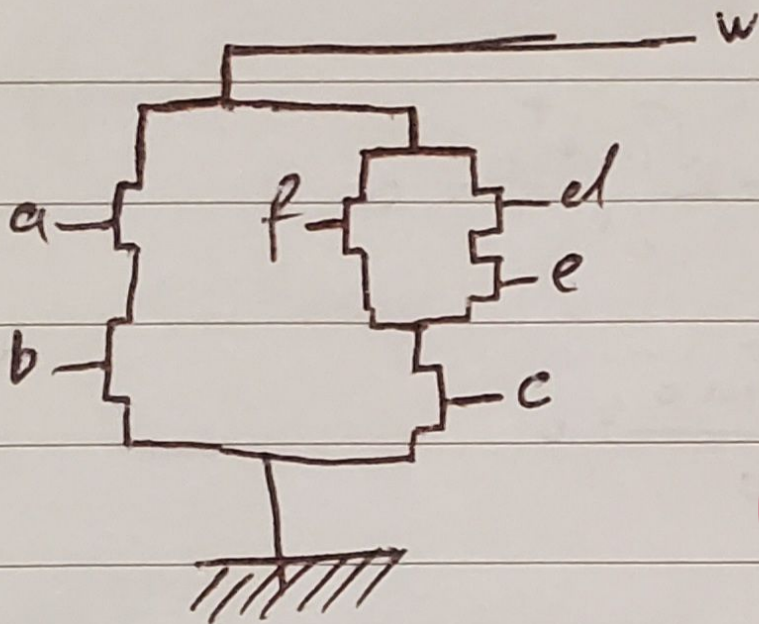 w
a
f
d
e
b
c